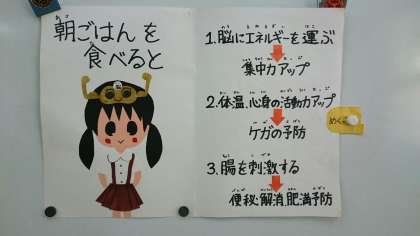 朝ごはんを
食べると
1.脳にエネルギーを運ぶ
集中力アップ
2.体温、心身の活動力アップ
ケガの予防
3.腸を刺激する
便秘解消、肥満予防